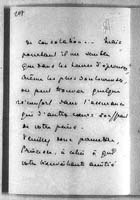 de consolation... Mais
pourtant il me semble
que dans les heures d'épreuves,
même les plus douloureuses,
on peut trouver quelque
réconfort dans l'assurance
que d'autres cœurs souffrent
de votre peine.
Veuillez vous permettre,
Princesse, à celui à qui
votre bienveillante amitié